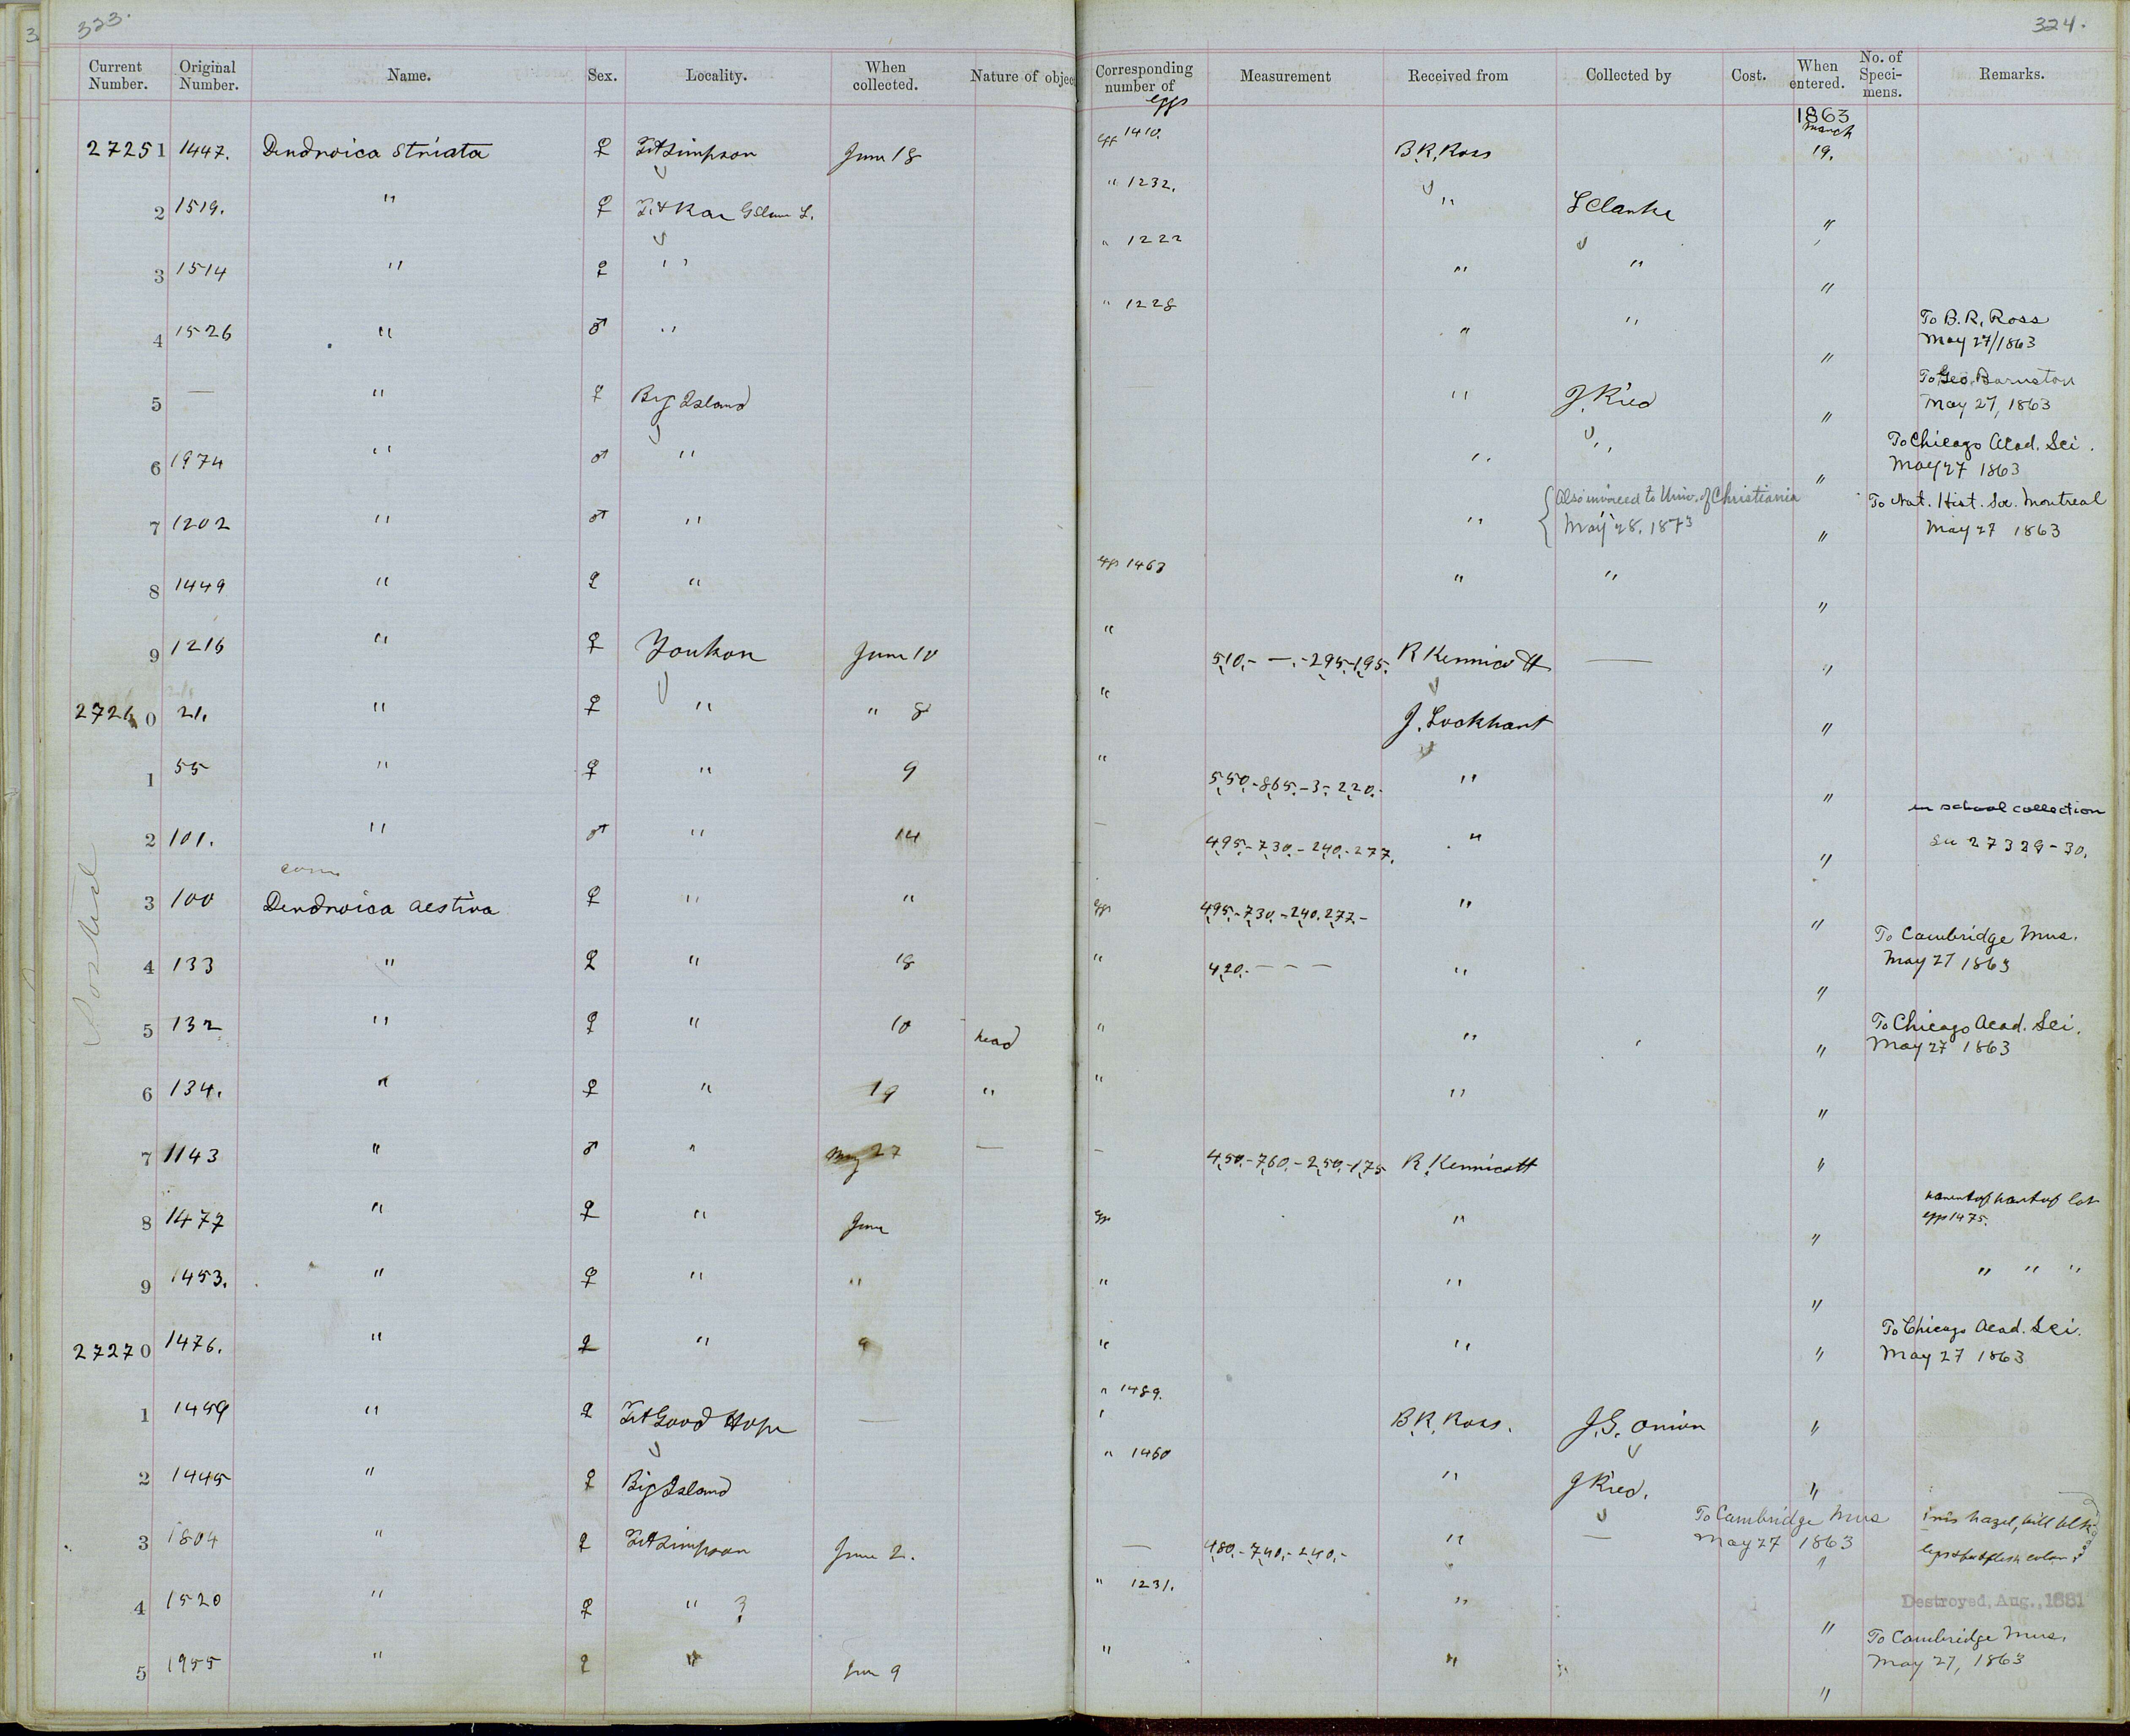 323.
324.
Current Number. Original Number. Name. Sex. Locality. When collected. Nature of objec Corresponding number of eggs Measurement Received from Collected by Cost. When entered. No. of Speci-mens. Remarks.
1863
March
27251 1447. Dendroica striata ♀ Ft Simpson June 18 egg 1410. B.R. Ross 19.
2 1519. " ♀ Ft Rae G Slave L. " 1232. " L Clarke "
3 1514 " ♀ " " 1222 " " "
4 1526 " ♂ " " 1228 " " " To B. R. Ross
May 27/1863
5 — " ♀ Big Island — " J. Ried " To Geo. Barnston
May 27, 1863
6 1974 " ♂ " " " " To Chicago Acad. Sci.
May 27 1863
7 1202 " ♂ " " Also invoiced to Univ. of Christiania
May 28. 1873 " To Nat. Hist. Soc. Montreal
May 27 1863
8 1449 " ♀ " egg 1463 " " "
9 1216 " ♀ Youkon June 10 " 5,10.- —.-2,95-1,95. R Kennicott — "
27260 21. " ♀ " " 8 " J. Lockhart "
1 55 " ♀ " 9 " 5,50.-8,65.-3.-2,20.- " " in school collection
2 101. " ♂ " 14 — 4,95.-7,30.-2,40.-2,77. " " See 27329-30.
3 100 Dendroica aestiva ♀ " " egg 4,95.-7,30.-2,40.2,77.- " "
4 133 " ♀ " 18 " 4,20.- — — — " " To Cambridge Mus.
May 27 1863
5 132 " ♀ " 10 head " " " To Chicago Acad. Sci.
May 27 1863
6 134. " ♀ " 19 " " " "
7 1143 " ♂ " May 27 — — 4,50.-7,60.-2,50.-1,75 R. Kennicott "
8 1477 " ♀ " June egg " " parent of
egg 1475.
9 1453. " ♀ " " " " " " " "
27270 1476. " ♀ " " " " " To Chicago Acad. Sci.
May 27 1863
1 1459 " ♀ Ft Good Hope — " 1489. B.R. Ross. J.G. Onion "
2 1445 " ♀ Big Island " 1460 " J Ried. "
3 1804 " ♀ Ft Simpson June 2. — 4,80.-7,40.-2,40.- " — To Cambridge Mus
May 27 1863 " iris hazel, bill blk
legs & feet flesh color
4 1520 " ♀ " ? " 1231. " " Destroyed, Aug., 1881
5 1955 " ♀ " June 9 " " " To Cambridge Mus.
May 27, 1863